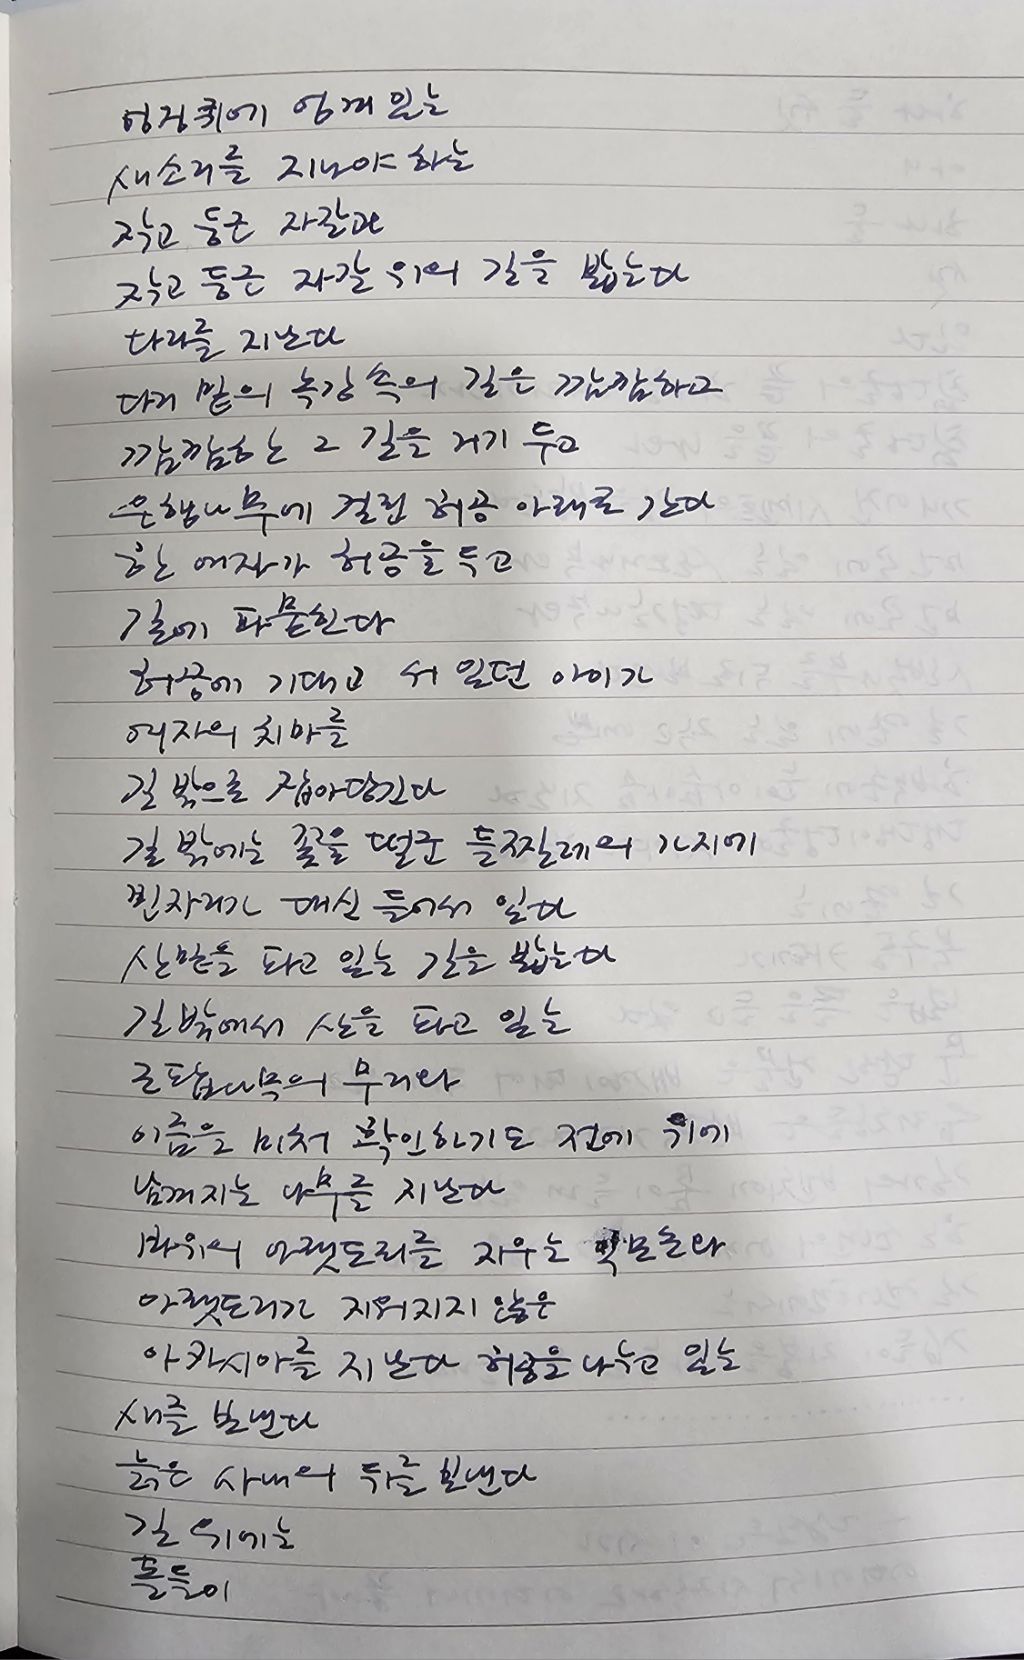 엉겅퀴에 엉켜 있는
새소리를 지나야 하는
작고 둥근 자갈과
작고 둥근 자갈 위의 길을 밟는다
다리를 지난다
다리 밑의 녹강 속의 길은 깜깜하고
깜깜하는 그 길을 거기 두고
은행나무에 걸린 허공 아래로 간다
웃는 여자가 허공을 두고
길에 파묻힌다
허공에 기대고 서 있던 아이가
여자의 치마를
길 밖으로 잡아당긴다
길 밖에는 꽃을 떨군 들찔레의 가지에
빈자리가 대신 들어서 있다
산맡을 타고 있는 길을 밟는다
길 밖에서 산을 타고 있는
굴탑나무의 무리와
이름을 미처 확인하기도 전에 뒤에
남겨지는 나무를 지난다
바위의 아랫도리를 지우는 억모손와
아랫도리가 지워지지 않은
아카시아를 지난다 허공을 나누고 있는
새를 보낸다
늙은 사내의 뒤를 보낸다
길 위에는
돌들이